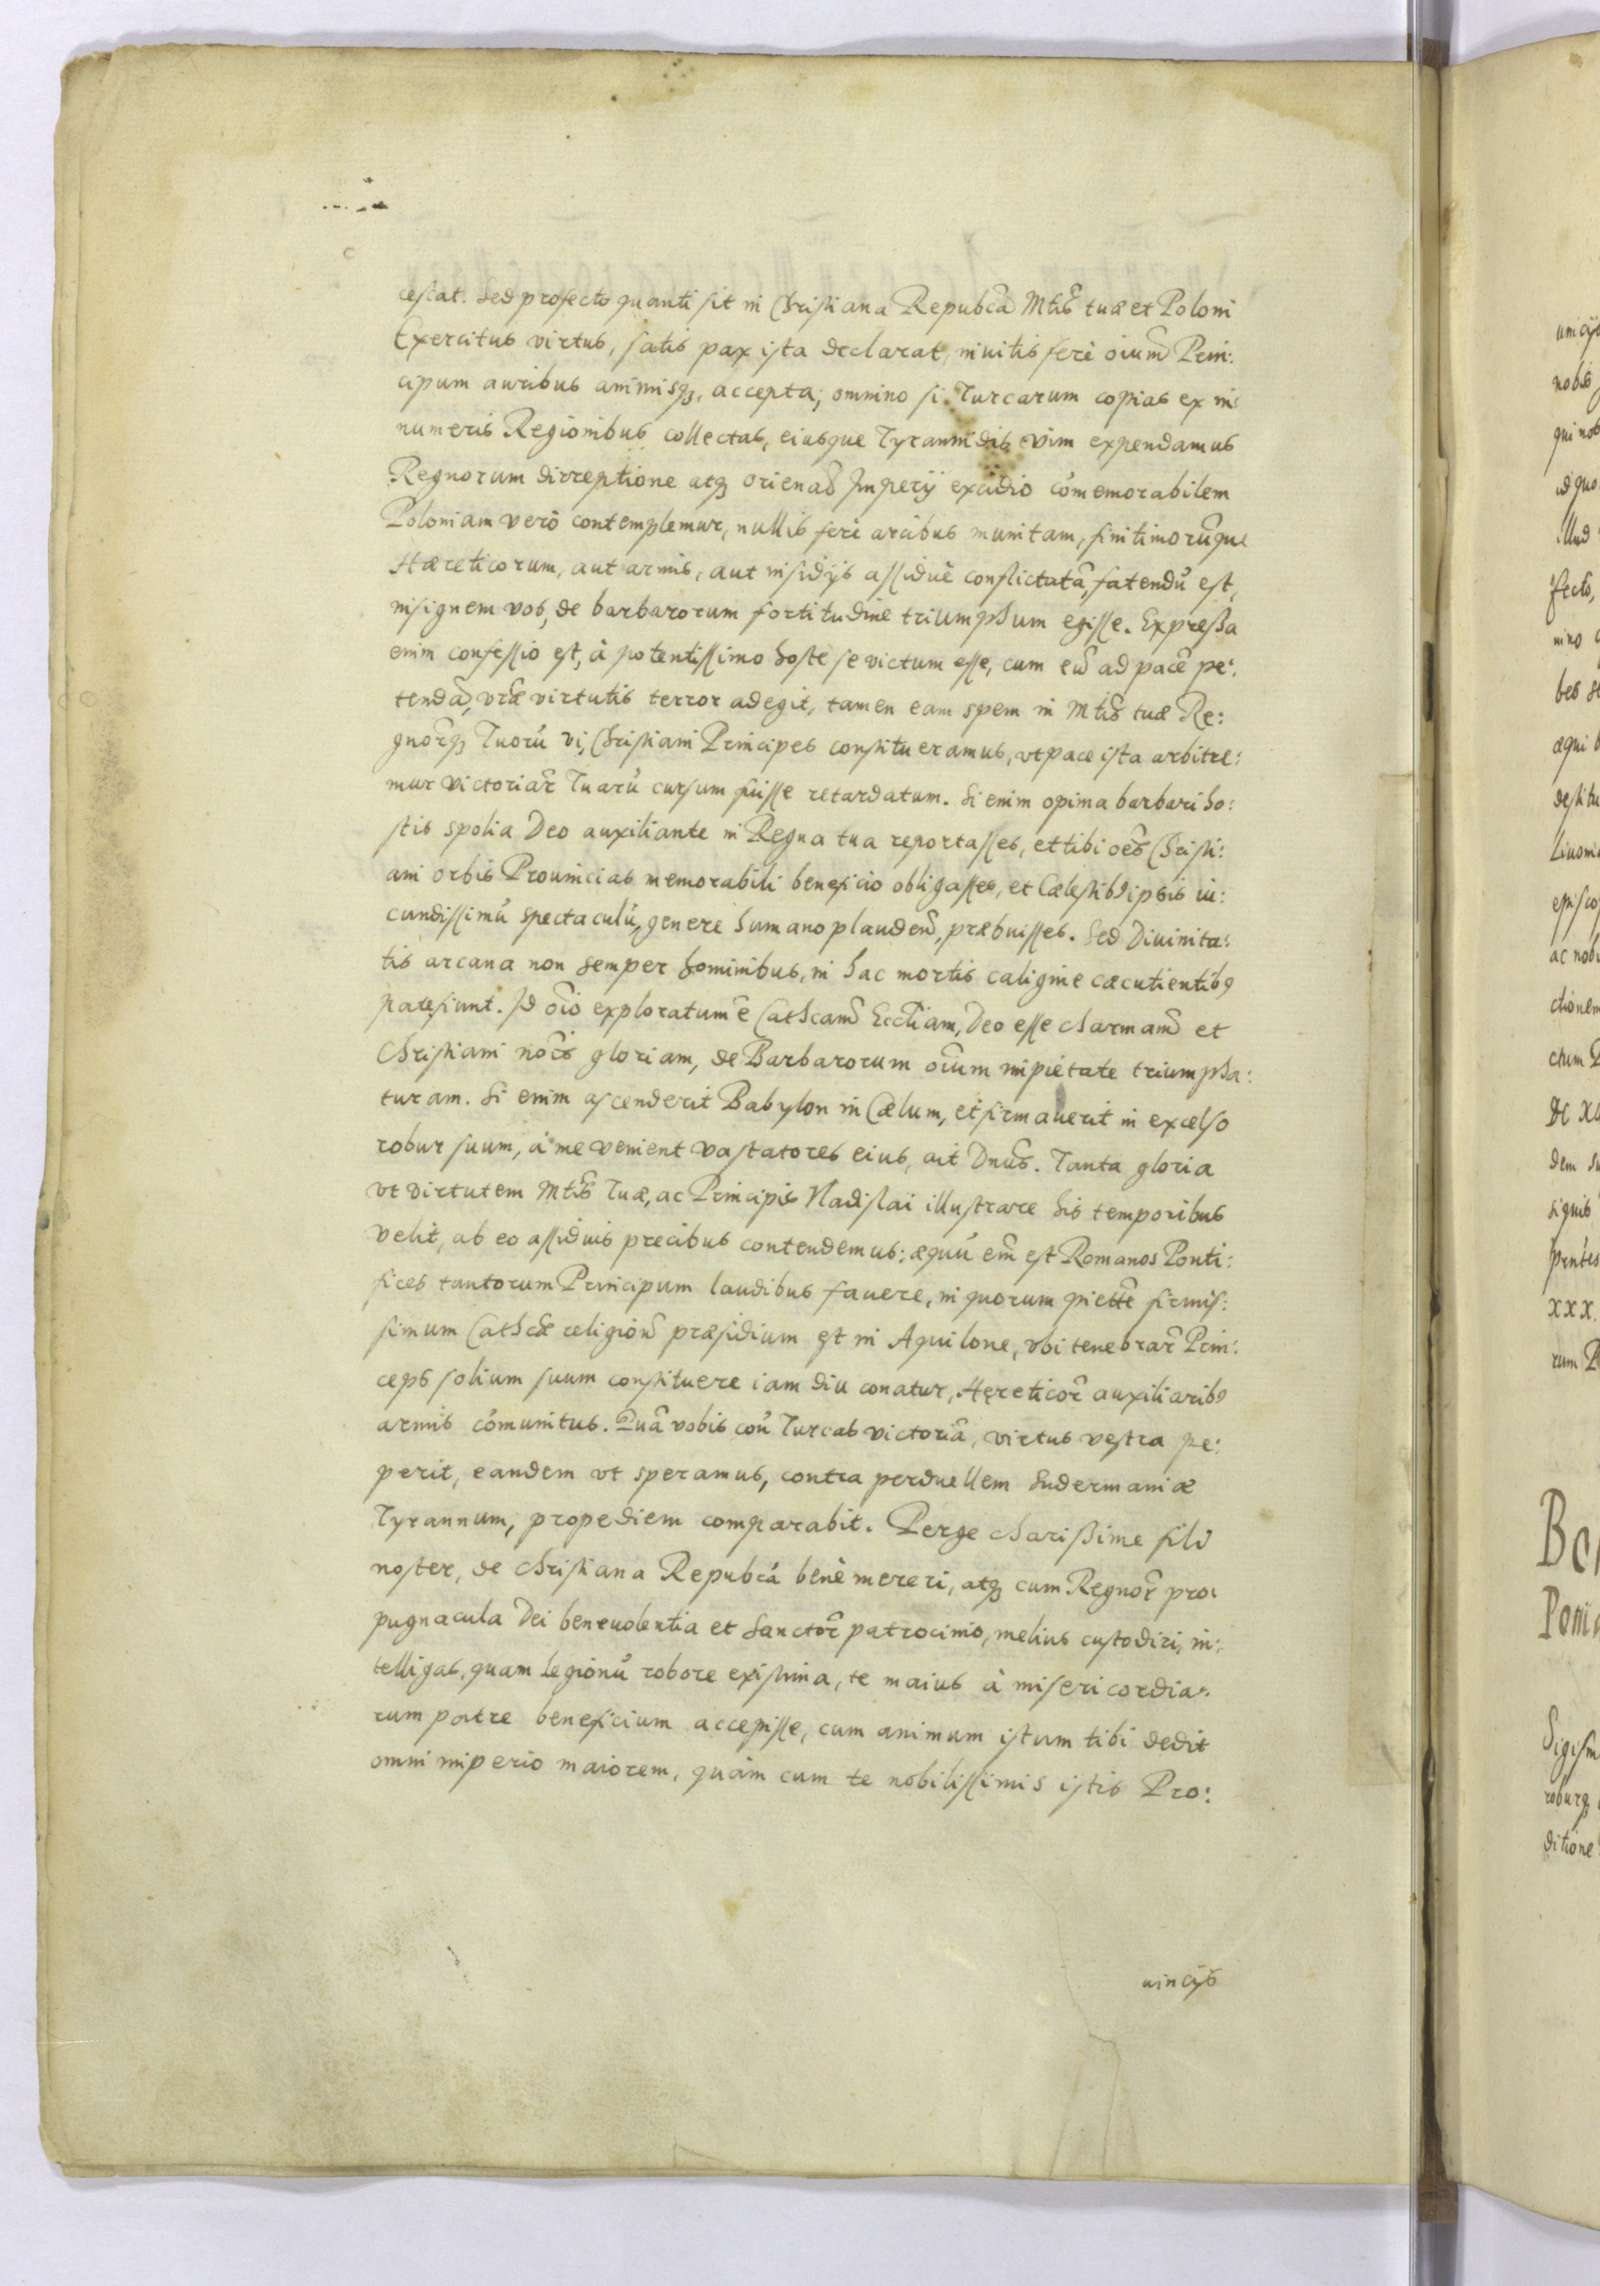 cestat. Sed profecto quanti sit in Christiana Repubcã Mtis̃ tuæ et Poloni
Exercitus virtus, satis pax ista declarat, inuitis ferè oium̃ Prin:
cipum auribus animisq;, accepta; omnino si Turcarum copias ex in:
numeris Regionibus collectas, eiusque Tyrannidis vim expendamus
Regnorum dirreptione atq; orienad̃ Imperij excidio cõmemorabilem
Poloniam verò contemplemur, nullis ferè arcibus munitam, finitimorũque
Hæreticorum, aut armis, aut insidijs assiduè conflictatã, fatendũ est,
insignem vos, de barbarorum fortitudine triumphum egisse. Expressa
enim confessio est, à potentissimo hoste se victum esse, cum eũ ad pacẽ pe:
tendã, vrã̃æ virtutis terror adegit, tamen eam spem in Mtis̃ tuæ Re:
gnorq̃; Tuorũ vi, Christiani Principes constitueramus, vt pace ista arbitre:
mur victoriar̃ Tuarũ cursum fuisse retardatum. Si enim opima barbari ho:
stis spolia Deo auxiliante in Regna tua reportasses, et tibi oẽs Christi:
ani orbis Prouincias memorabili beneficio obligasses, et Cælestib9 ipsis iu:
cundissimũ spectaculũ, genere humano plaudẽn, præbuisses. Sed Diuinita:
tis arcana non semper hominibus, in hac mortis caligine cæcutientib9
patefiunt. Id oĩo exploratum ẽ Cathcam̃ Ecctiam̃, Deo esse charmam̃ et
Christiani noĩs gloriam, de Barbarorum oĩum impietate triumpha:
turam. Si enim ascenderit Babylon in Cælum, et firmauerit in excelso
robur suum, à me venient vastatores eius, ait Dnũs. Tanta gloria
vt virtutem Mtis̃ Tuæ, ac Principis Vladislai illustrare his temporibus
velit, ab eo assiduis precibus contendemus: æquũ em̃ est Romanos Ponti:
fices tantorum Principum laudibus fauere, in quorum piettẽ firmis:
simum Cathcæ̃ religioñ præsidium est in Aquilone, vbi tenebrar̃ Prin:
ceps solium suum constituere iam diu conatur, Hęreticor̃ auxiliarib9
armis cõmunitus. Quã vobis coñ Turcas victoriã, virtus vestra pe:
perit, eandem vt speramus, contra perduellem Sudermaniæ
Tyrannum, propediem comparabit. Perge charissime fili
noster, de Christiana Repubcã benè mereri, atq; cum Regnor̃ pro:
pugnacula Dei beneuolentia et Sanctor̃ patrocinio, melius custodiri, in:
telligas, quam legionũ robore existima, te maius à misericordia:
rum patre beneficium accepisse, cum animum istum tibi dedit
omni imperio maiorem, quàm cum te nobilissimis istis Pro:
uincijs